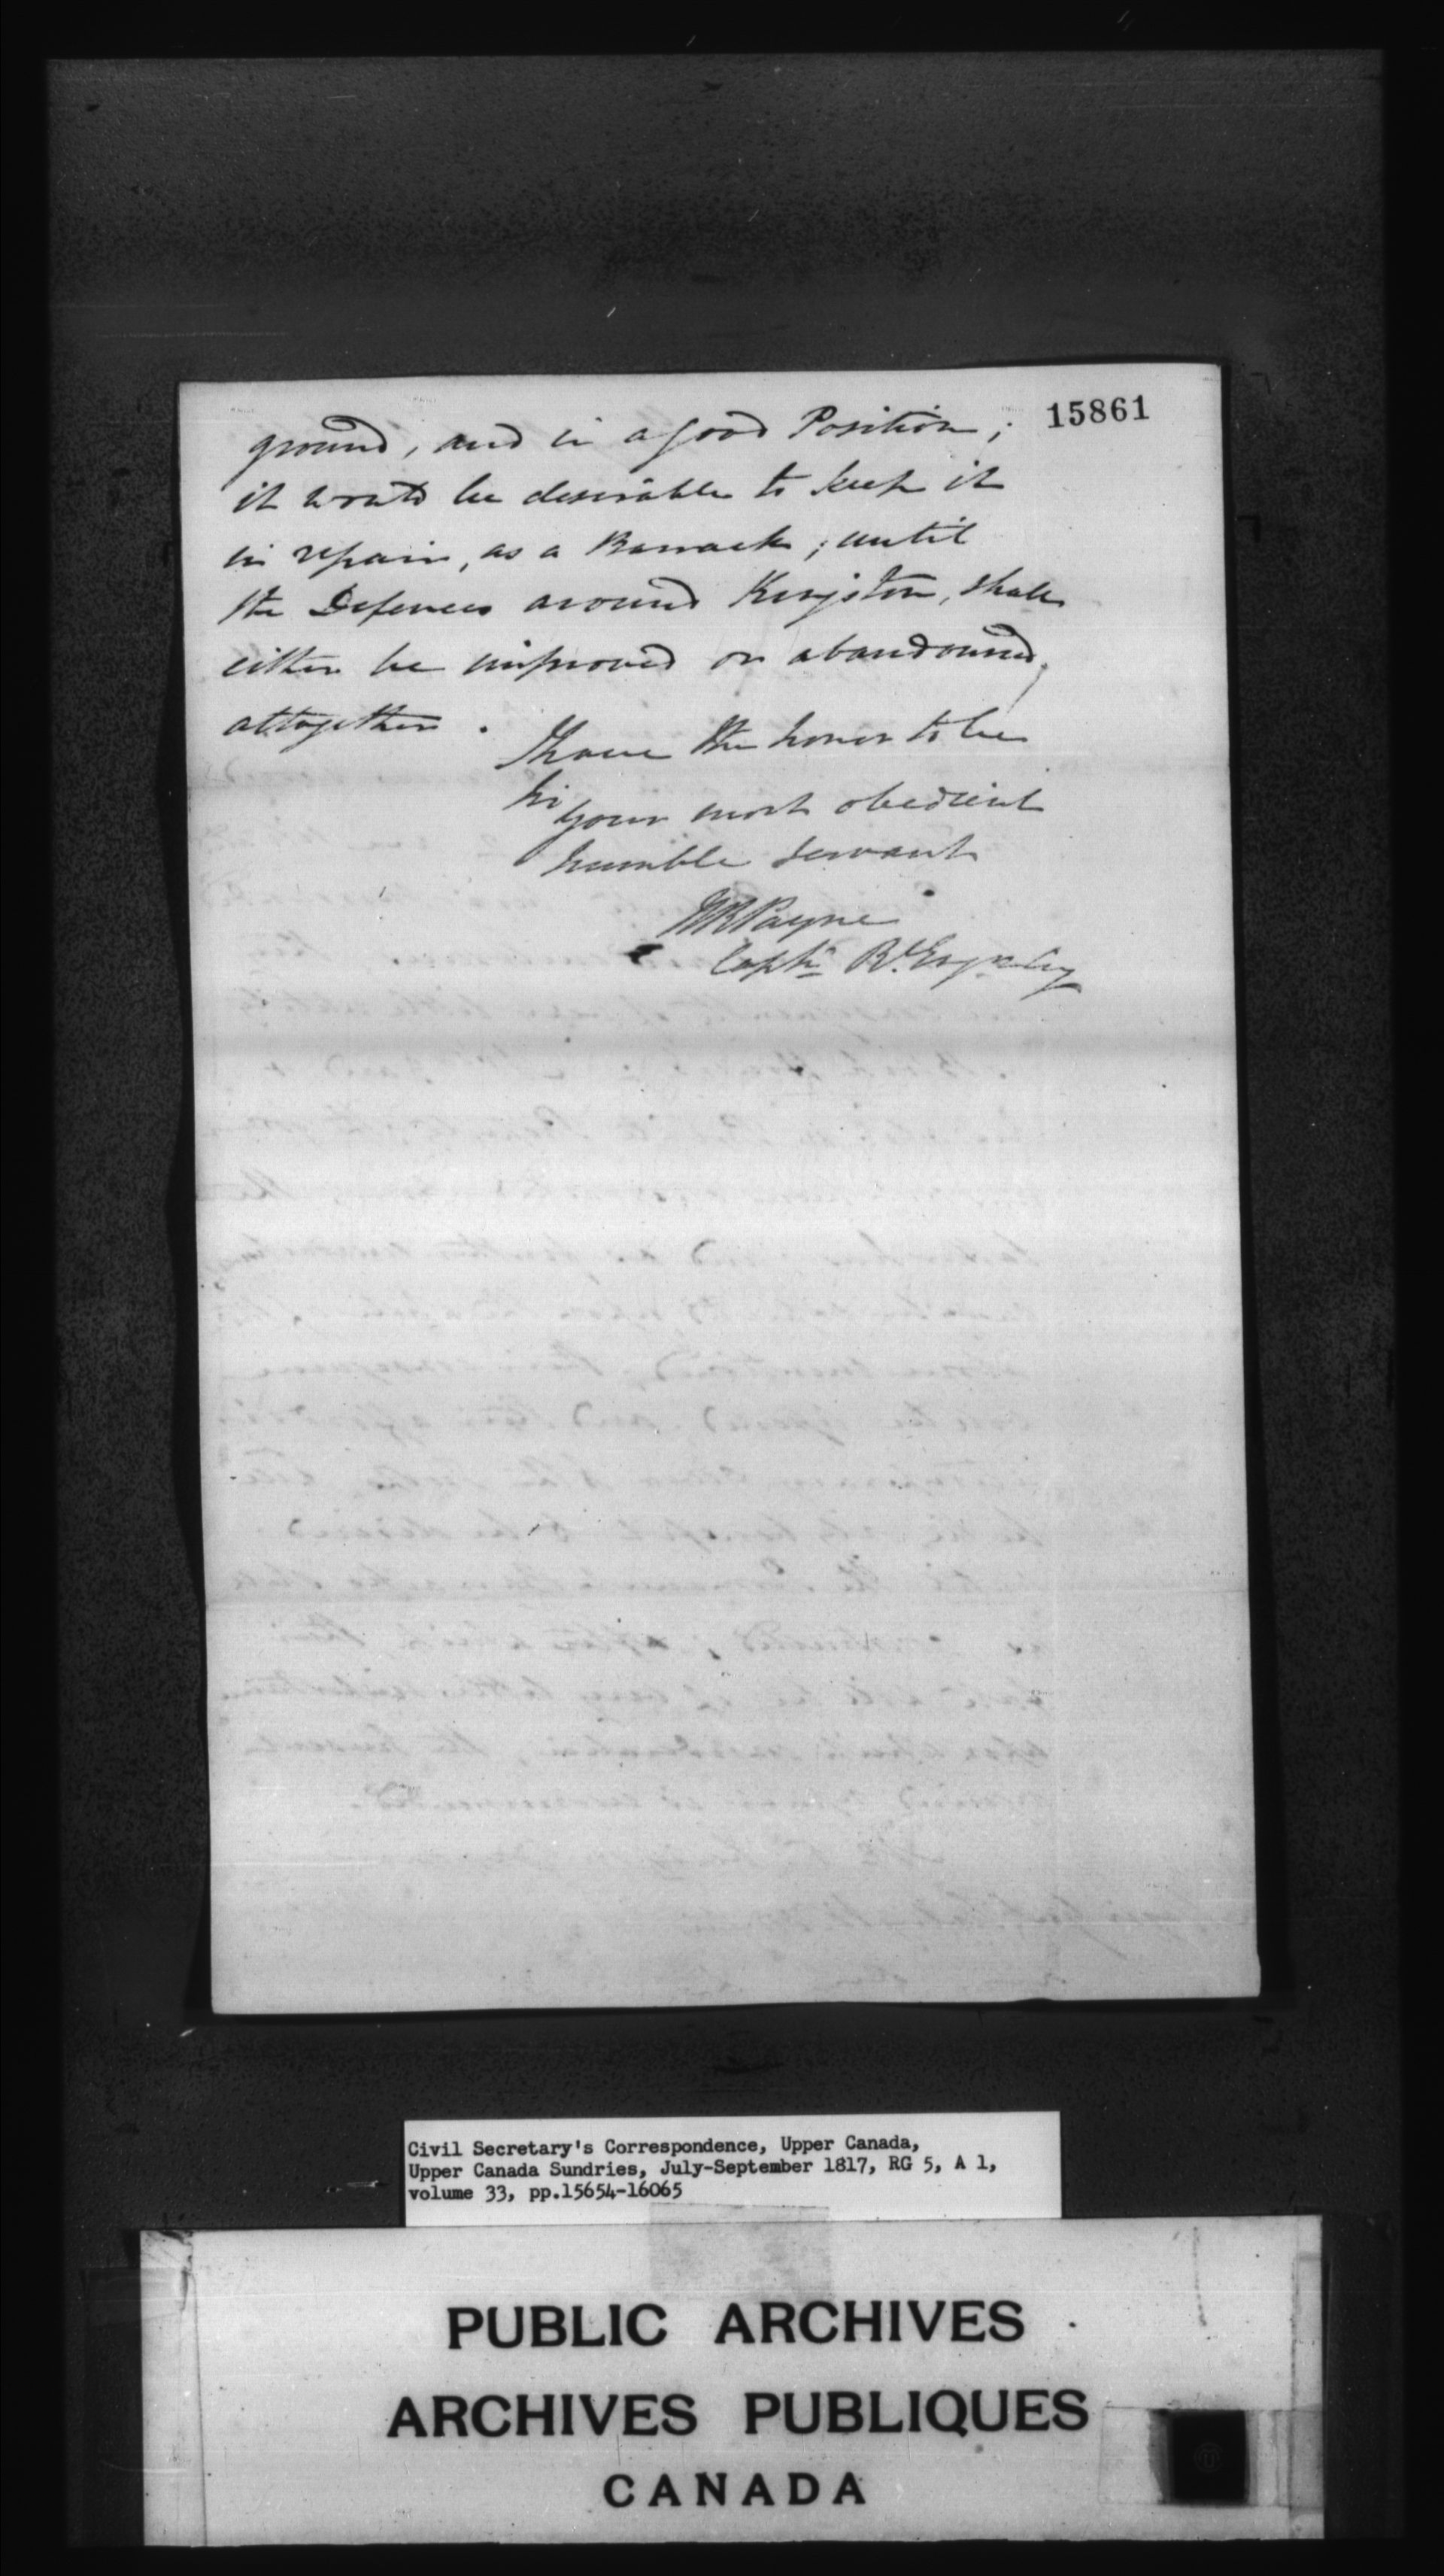 15861
ground, and in a good Position;
it would be desirable to keep it
in repair, as a Barrack; until
the Defences around Kingston, shall
either be improved or abandonned,
altogether.
I have the honor to be
Sir
your most obedient
humble servant
Payne
Captn Rl. Engrs
Civil Secretary's Correspondence, Upper Canada,
Upper Canada Sundries, July-September 1817, RG 5, A 1,
volume 33, pp.15654-16065
PUBLIC ARCHIVES
ARCHIVES PUBLIQUES
CANADA